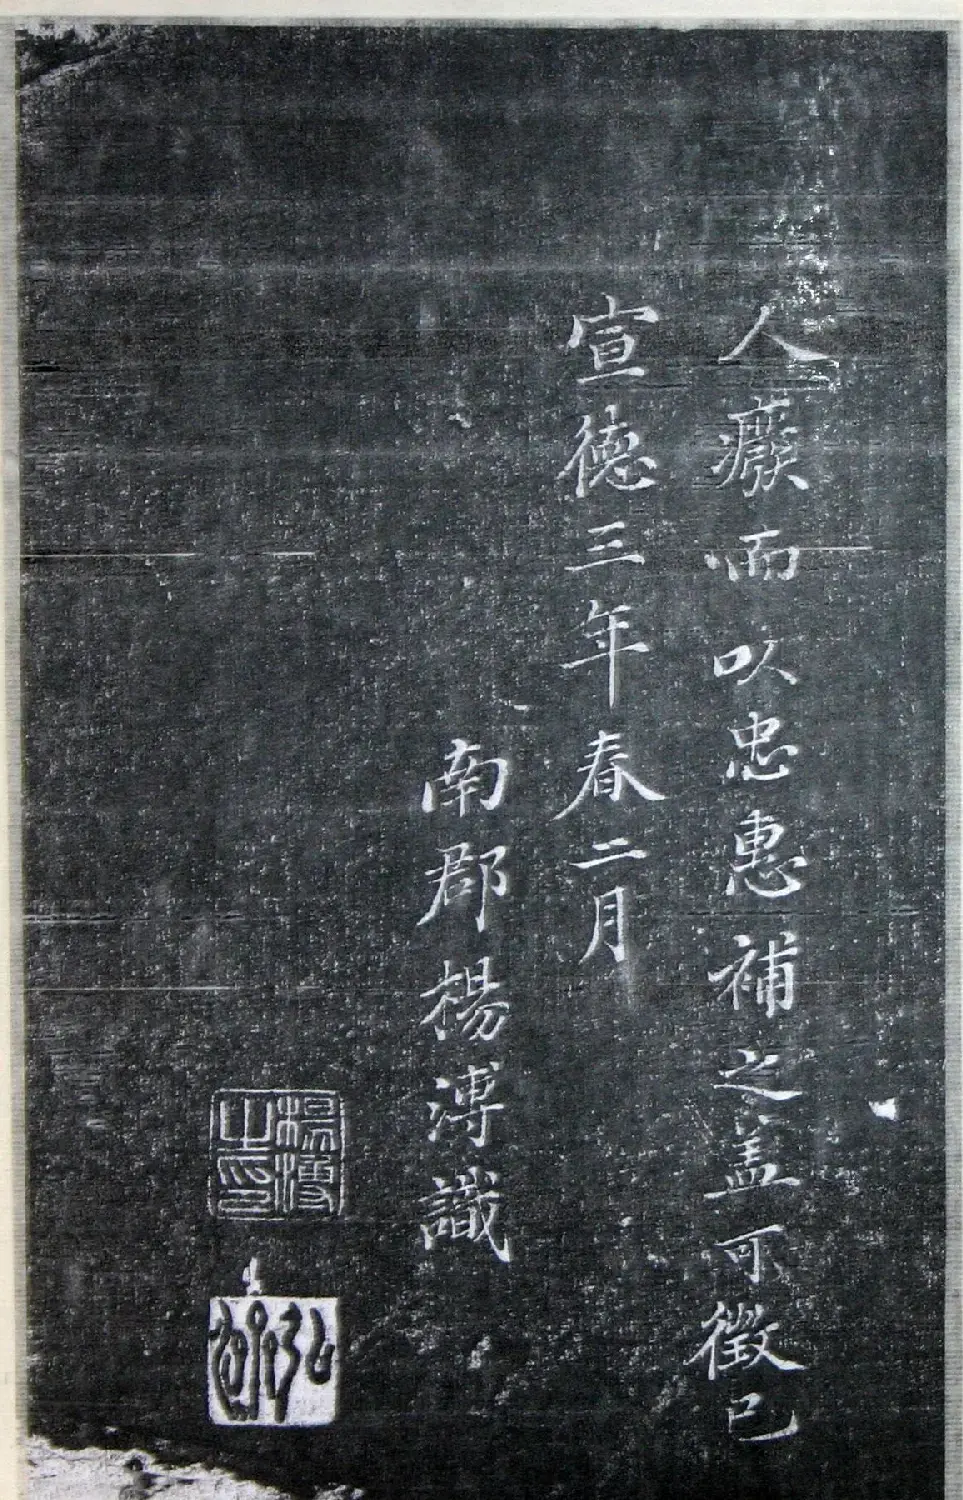 人癈而以忠惠補之盖可徵已
宣德三年春二月
南郡楊溥識
楊溥之印
弘濟